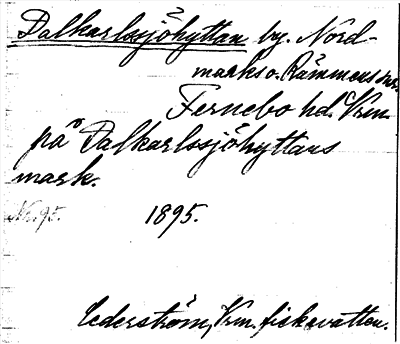 2
Dalkarlssjöhyttan by. Nord-
marks o. Rämmens snr.
Fernebo hd. Vrm.
på Dalkarlssjöhyttans
mark.
Nr. 95. 1895.
Cederström, Vrm. fiskevatten.